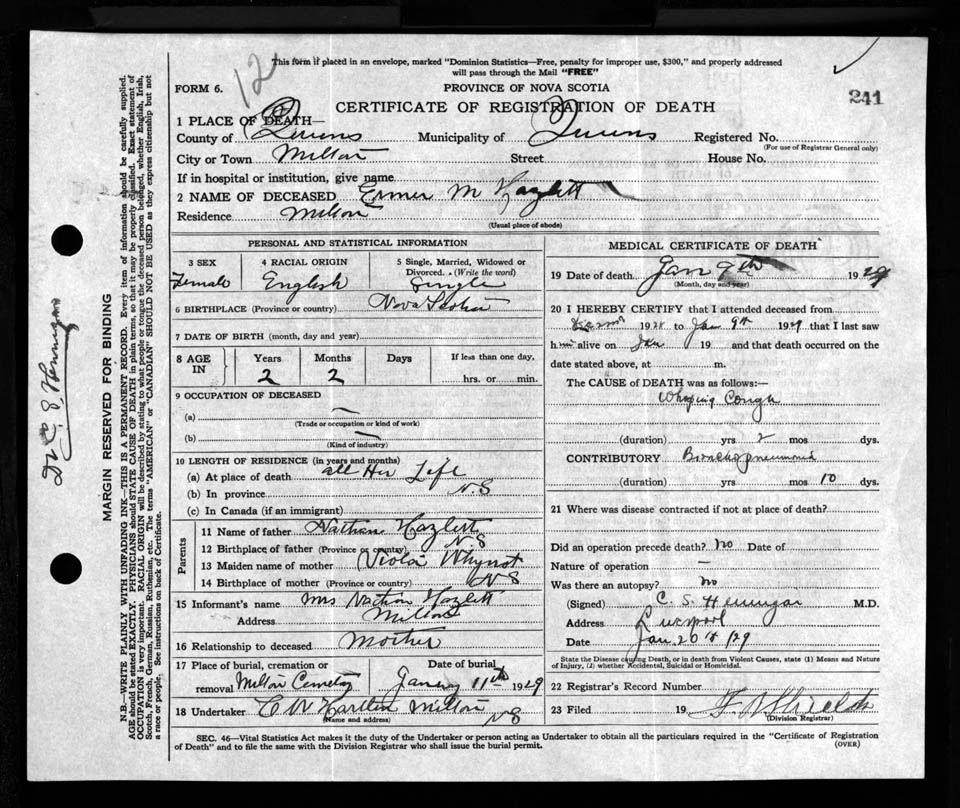 This form if placed in an envelope, marked "Dominion Statistics—Free, penalty for improper use, $300," and properly addressed
will pass through the Mail "FREE"
12
FORM 6.
PROVINCE OF NOVA SCOTIA
CERTIFICATE OF REGISTRATION OF DEATH
241
1 PLACE OF DEATH—
County of Queens Municipality of Queens Registered No.
(For use of Registrar General only)
City or Town Milton Street House No.
If in hospital or institution, give name
2 NAME OF DECEASED M Hazlett
Residence Milton
(Usual place of abode)
PERSONAL AND STATISTICAL INFORMATION
3 SEX 4 RACIAL ORIGIN 5 Single, Married, Widowed or Divorced. (Write the word)
Female English Single
6 BIRTHPLACE (Province or country) Nova Scotia
7 DATE OF BIRTH (month, day and year)
8 AGE IN Years Months Days If less than one day,
2 2 hrs. or min.
9 OCCUPATION OF DECEASED
(a) —
(Trade or occupation or kind of work)
(b) —
(Kind of industry)
10 LENGTH OF RESIDENCE (in years and months)
(a) At place of death all Her Life
(b) In province N.S
(c) In Canada (if an immigrant)
Parents
11 Name of father Nathan Hazlett
12 Birthplace of father (Province or country) N.S
13 Maiden name of mother Viola Whynot
14 Birthplace of mother (Province or country) N S
15 Informant's name Mrs Nathan Hazlett
Milton
16 Relationship to deceased Mother
17 Place of burial, cremation or removal Milton Cemetery Date of burial January 11th 1929
18 Undertaker C W Milton
(Name and address) N S
MEDICAL CERTIFICATE OF DEATH
19 Date of death Jan 9th 1929
(Month, day and year)
20 I HEREBY CERTIFY that I attended deceased from
1928 to Jan 9th 1929 that I last saw
h alive on Jan 19 and that death occurred on the
date stated above, at m.
The CAUSE of DEATH was as follows:—
Whoping Cough
(duration) yrs 2 mos dys.
CONTRIBUTORY Bronchopneumonia
(duration) yrs mos 10 dys.
21 Where was disease contracted if not at place of death?
Did an operation precede death? No Date of
Nature of operation —
Was there an autopsy? No
(Signed) C. S. Hennigar M.D.
Address Liverpool
Date Jan. 20 29
State the Disease causing Death, or in death from Violent Causes, state (1) Means and Nature
of Injury, (2) whether Accidental, Suicidal or Homicidal.
22 Registrar's Record Number
23 Filed 19
(Division Registrar)
SEC. 46—Vital Statistics Act makes it the duty of the Undertaker or person acting as Undertaker to obtain all the particulars required in the "Certificate of Registration
of Death" and to file the same with the Division Registrar who shall issue the burial permit.
(OVER)
MARGIN RESERVED FOR BINDING
N.B.—WRITE PLAINLY WITH UNFADING INK—THIS IS A PERMANENT RECORD. Every item of information should be carefully supplied.
AGE should be stated EXACTLY. PHYSICIANS should STATE CAUSE OF DEATH in plain terms, so that it may be properly classified. Exact statement of
OCCUPATION is very important. RACIAL ORIGIN will be described by stating to what people or tongue the deceased person belonged, whether English, Irish,
Scotch, French, German, Russian, Ruthenian, etc. The terms "AMERICAN" or "CANADIAN" SHOULD NOT BE USED as they express citizenship but not
a race or people. See instructions on back of Certificate.